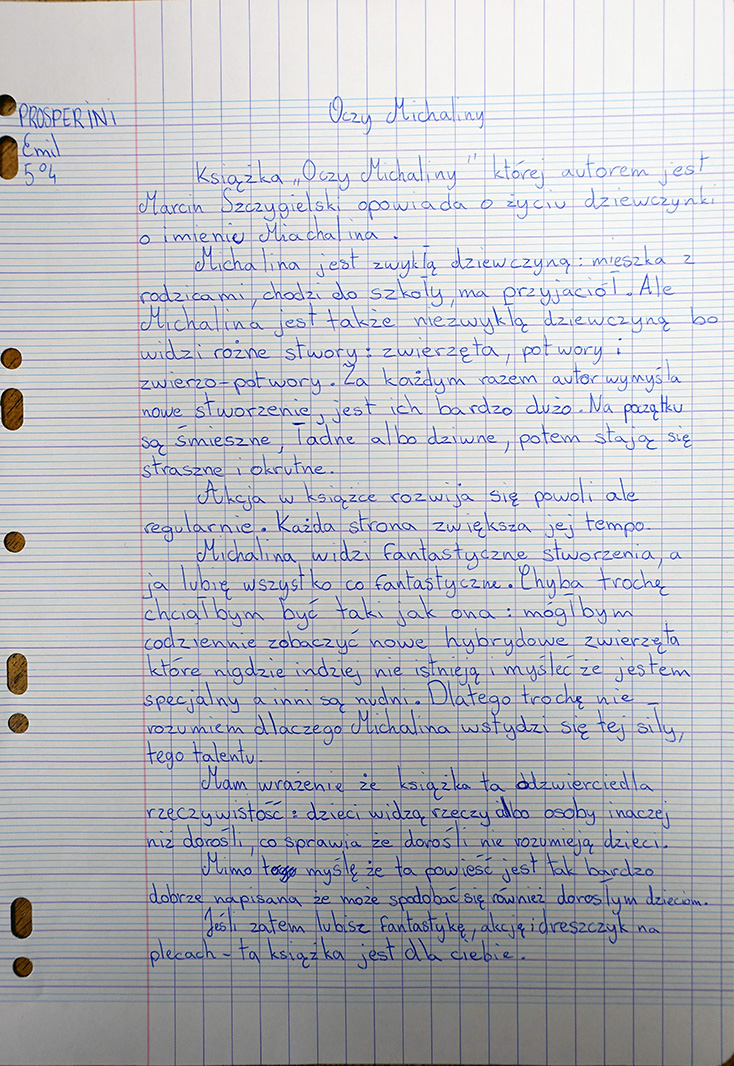 PROSPERINI
Oczy Michaliny
Emil
5°4
Książka „Oczy Michaliny" której autorem jest
Marcin Szczygielski opowiada o życiu dziewczynki
o imieniu Miachalina.
Michalina jest zwykłą dziewczyną: mieszka z
rodzicami, chodzi do szkoły, ma przyjaciół. Ale
Michalina jest także niezwykłą dziewczyną bo
widzi rożne stwory: zwierzęta, potwory i
zwierzo-potwory. Za każdym razem autor wymyśla
nowe stworzenie, jest ich bardzo dużo. Na początku
są śmieszne, ładne albo dziwne, potem stają się
straszne i okrutne.
Akcja w książce rozwija się powoli ale
regularnie. Każda strona zwiększa jej tempo.
Michalina widzi fantastyczne stworzenia, a
ja lubię wszystko co fantastyczne. Chyba trochę
chciałbym być taki jak ona: mógłbym
codziennie zobaczyć nowe hybrydowe zwierzęta
które nigdzie indziej nie istnieją i myśleć że jestem
specjalny a inni są nudni. Dlatego trochę nie
rozumiem dlaczego Michalina wstydzi się tej siły,
tego talentu.
Mam wrażenie że książka ta odzwierciedla
rzeczywistość: dzieci widzą rzeczy albo osoby inaczej
niż dorośli, co sprawia że dorośli nie rozumieją dzieci.
Mimo tego myślę że ta powieść jest tak bardzo
dobrze napisana że może spodobać się również dorosłym dzieciom.
Jeśli zatem lubisz fantastykę, akcję i dreszczyk na
plecach - ta książka jest dla ciebie.